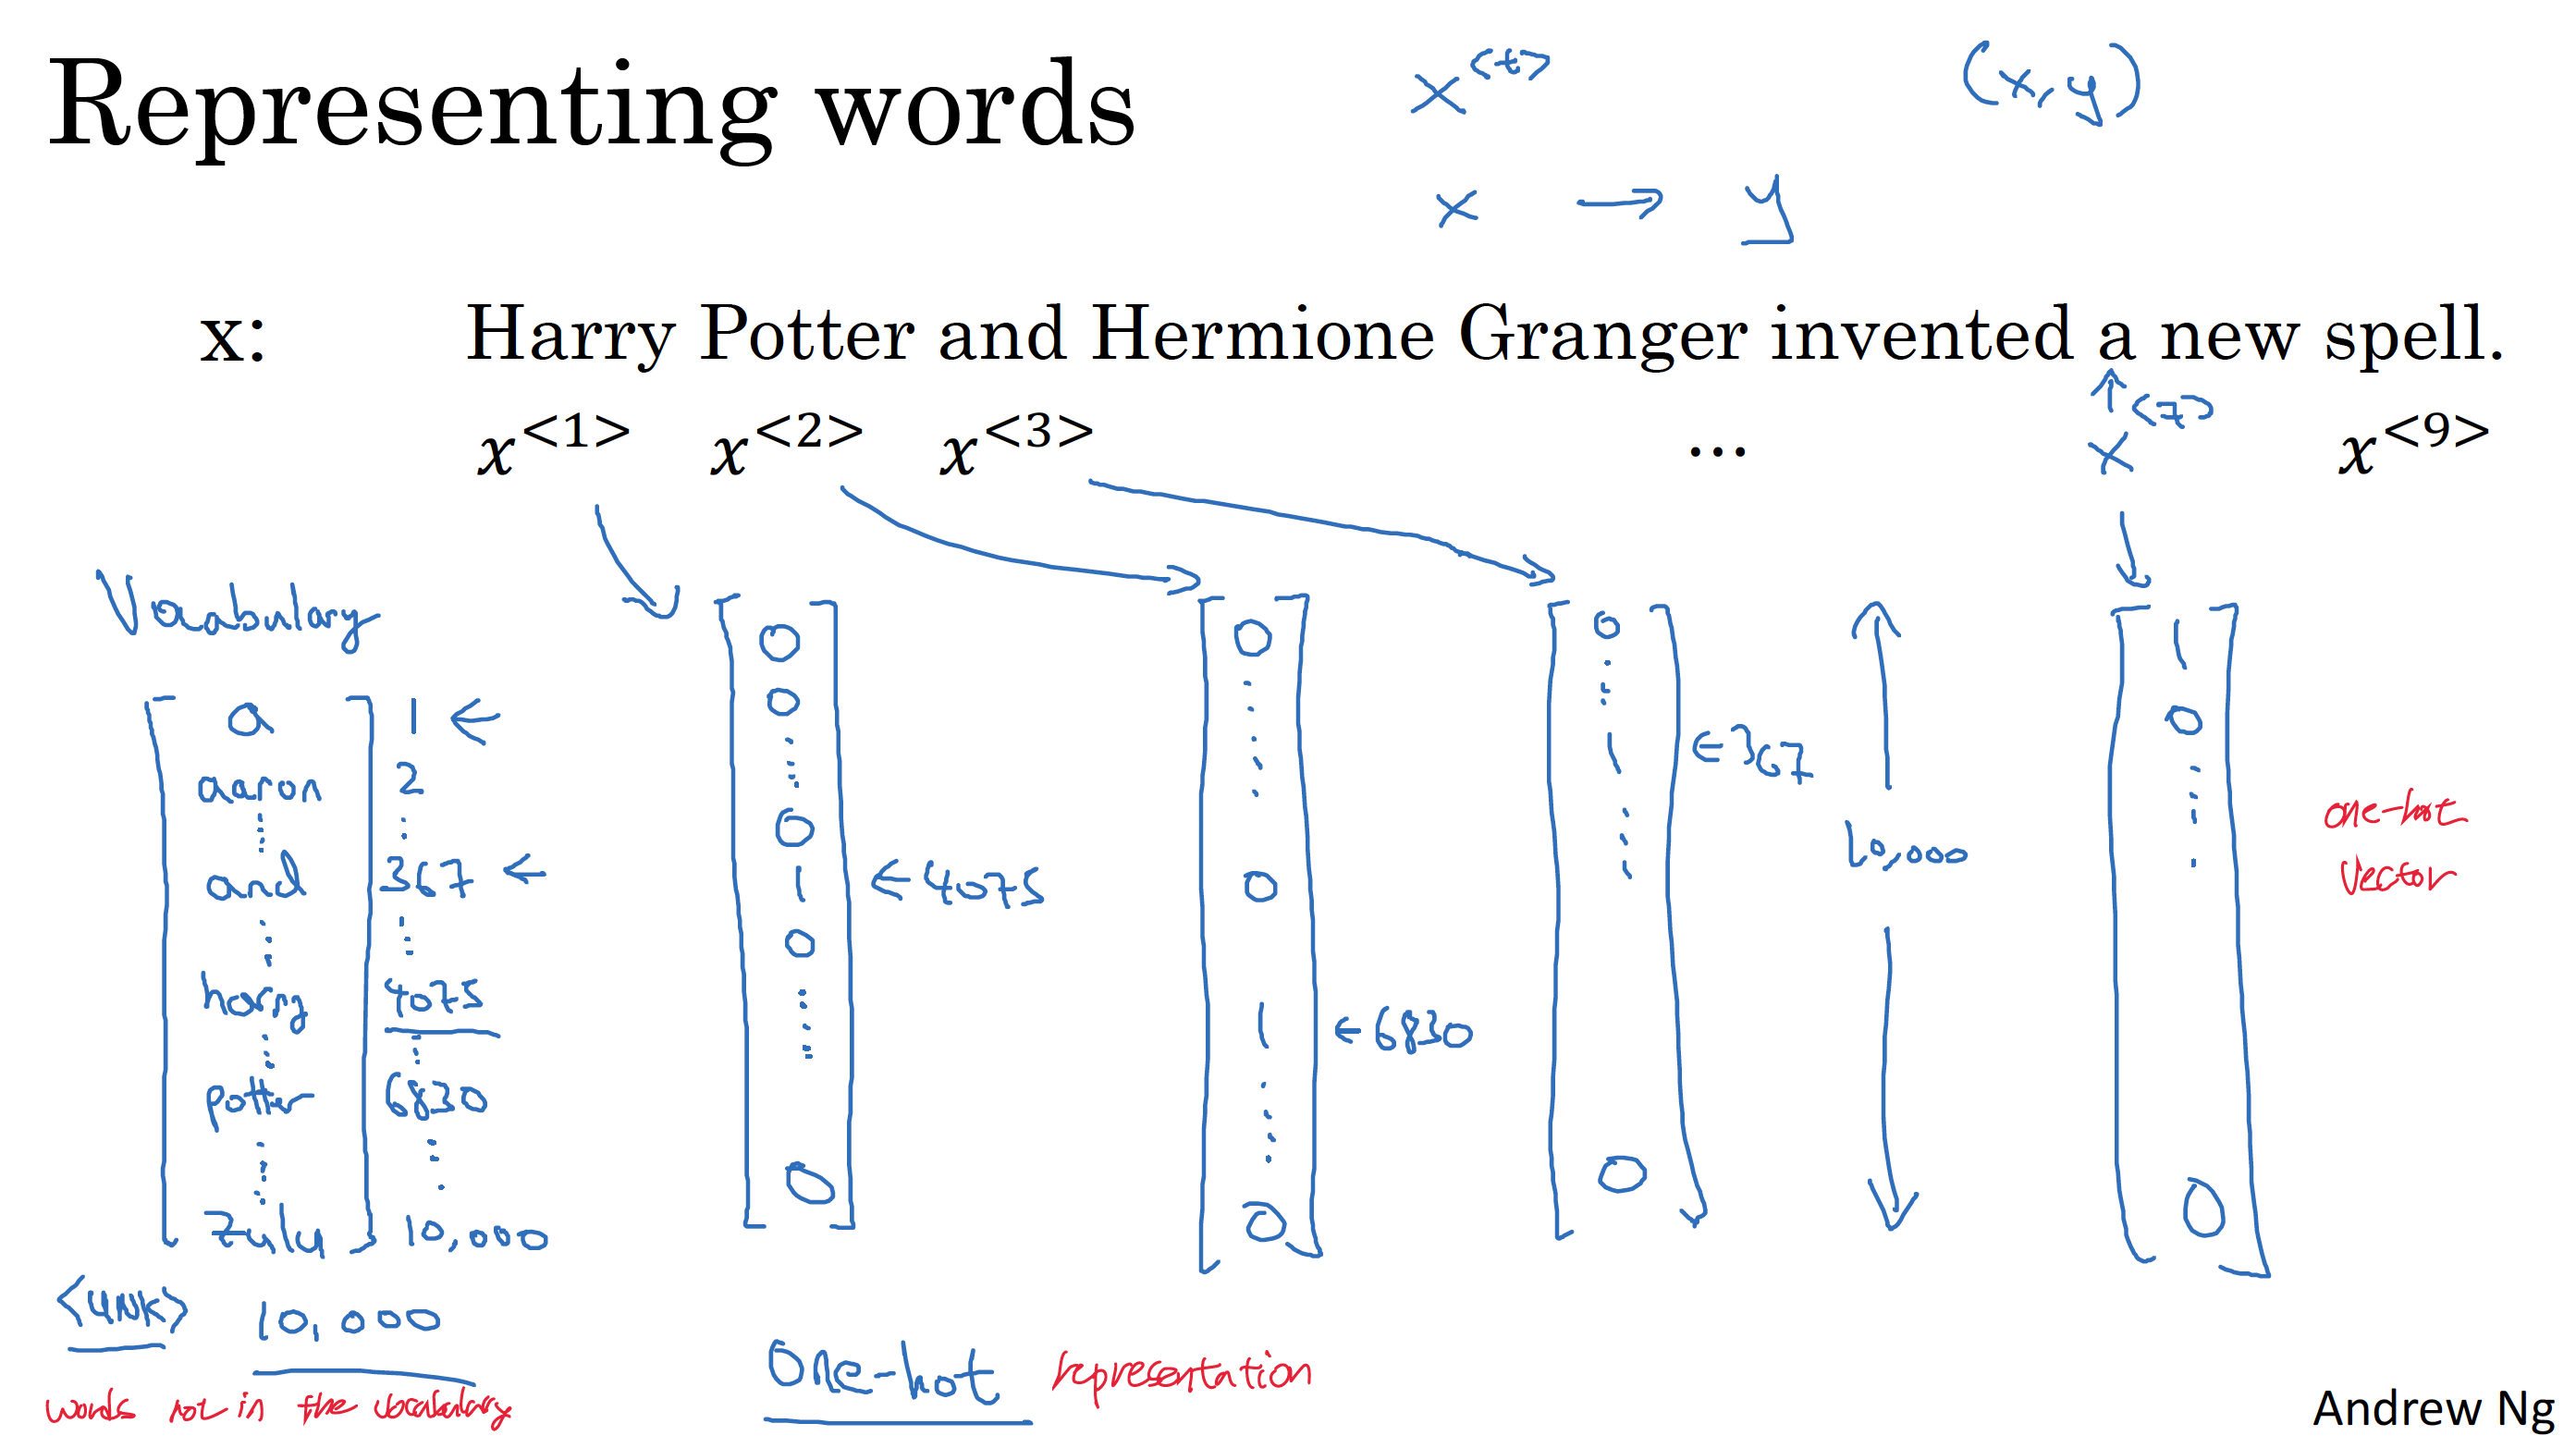 Representing words
x<t>
(x, y)
x → y
x: Harry Potter and Hermione Granger invented a new spell.
x<1> x<2> x<3> ... x<7> x<9>
Vocabulary
a 1 ←
aaron 2
and 367 ←
harry 4075
potter 6830
zulu 10,000
<UNK> 10,000
words not in the vocabulary
0
0
0
1 ← 4075
0
0
0
0
1 ← 6830
0
0
1 ← 367
0
10,000
1
0
0
one-hot
vector
One-hot representation
Andrew Ng